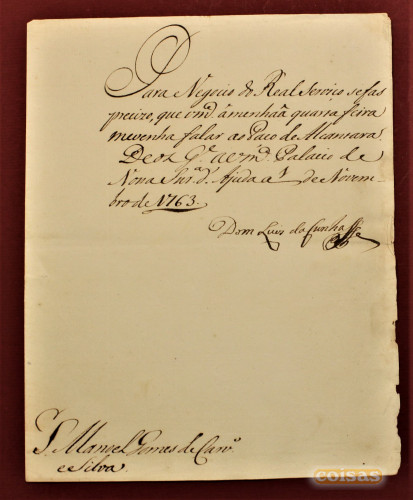 Para Negocio do Real Serviço sefas
precizo, que vmd. âmenhaã quarta feira
mevenha falar ao Paço de Alcantara.
Deos Ge. a vmd. Palacio de
Nosa Snr.ª d' Ajuda a 1 de Novem
bro de 1763.
Dom Luis da Cunha
Sr. Manoel Gomes de Carvo.
e Silva.
coisas